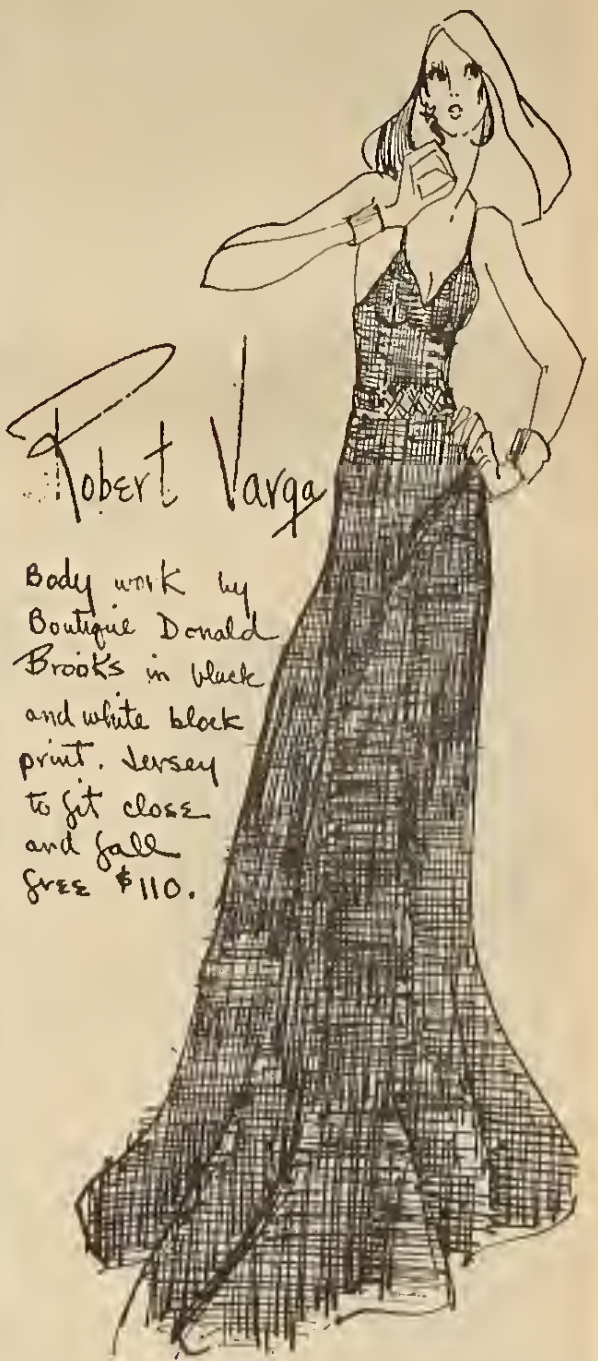 Robert Varga
Body work by
Boutique Donald
Brooks in black
and white block
print. Jersey
to fit close
and fall
free $110.